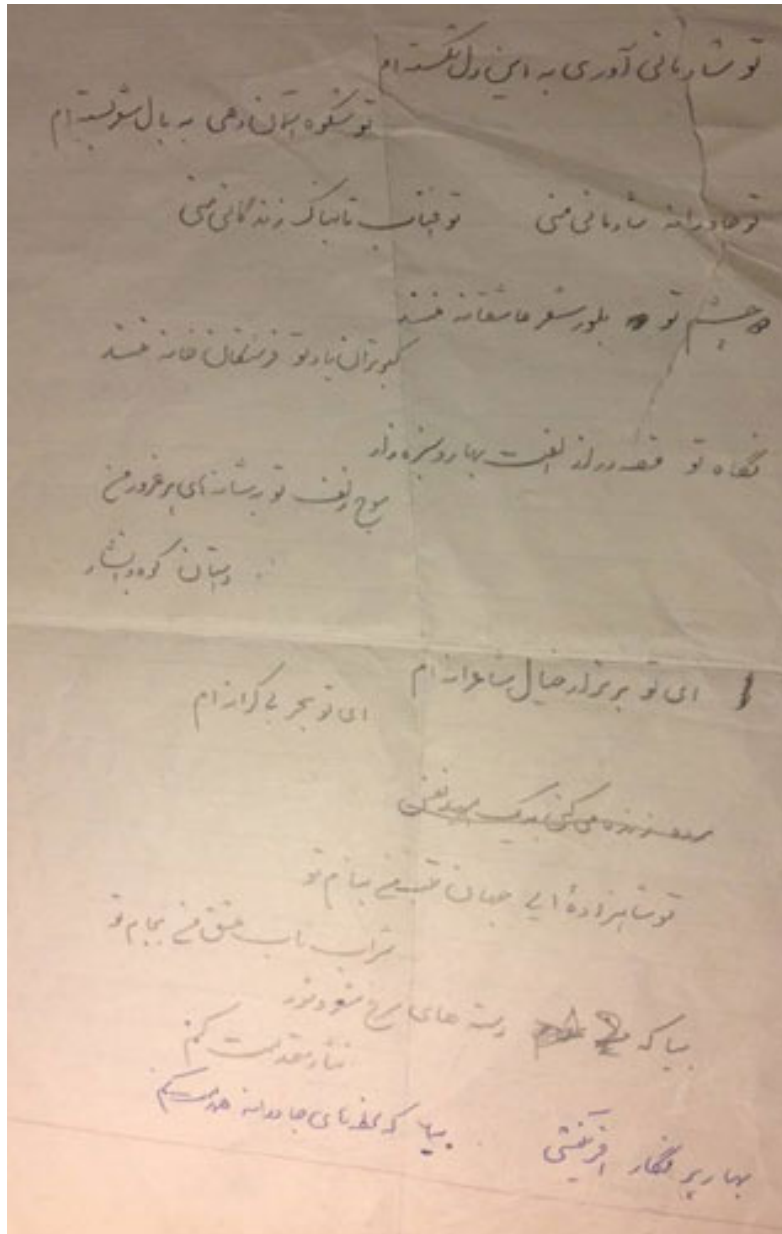 تو شادمانی آوری به این دل شکسته ام
تو شکوه آسمان دهی به بال شعر بسته ام
تو جاودانه شادمانی منی تو آفتاب تابناک زندگانی منی
چشم تو بلور شعر عاشقانه منند
کبوتران یاد تو فرشتگان خانه منند
نگاه تو قصه دراز الفت بهار و سبزه زار
موج زلف تو رشته های پر غرور من
داستان کوه و آبشار
ای تو برتر از خیال شاعرانه ام
ای تو بحر بی کرانه ام
تو شاهزاده ای جهان قلب من بنام تو
شراب ناب عشق من بجام تو
بیا که رسته های سرخ شعر و نور
نثار مقدمت کنم
بهار پر نگار آفرینشی بیا که نغمه های جاودانه هدیه ات کنم